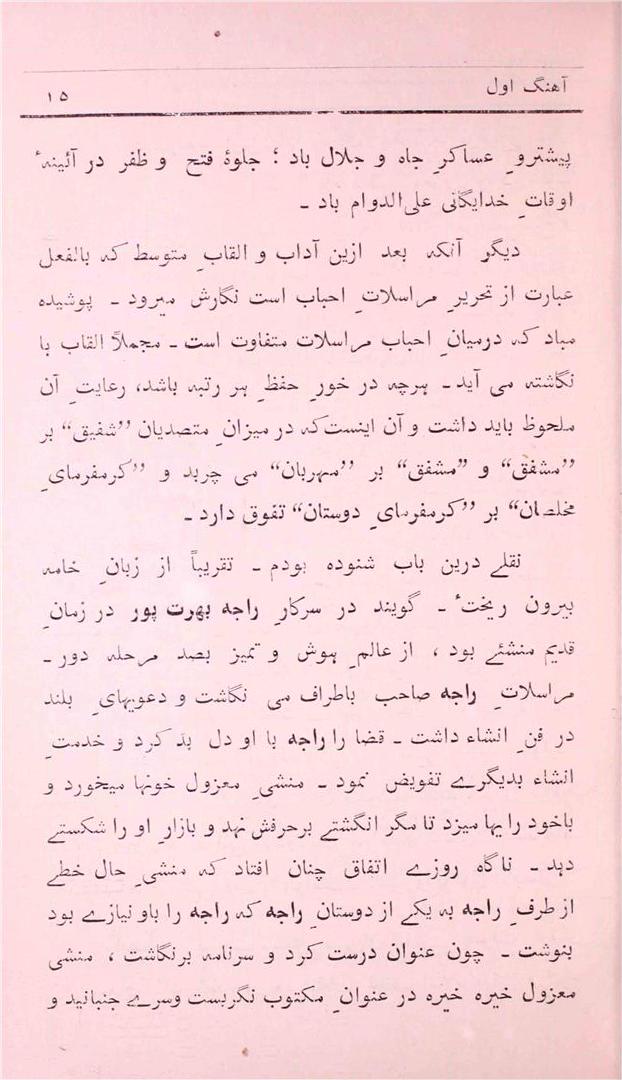 آهنگ اول ۱۵
پیشترو ِ عساکر ِ جاه و جلال باد ؛ جلوهٔ فتح و ظفر در آئینهٔ
اوقات ِ خدایگانی علی‌الدوام باد ۔
دیگر آنکه بعد ازین آداب و القاب ِ متوسط که بالفعل
عبارت از تحریر ِ مراسلات ِ احباب است نگارش میرود ۔ پوشیده
مباد که درمیان ِ احباب مراسلات متفاوت است ۔ مجملاً القاب با
نگاشته می آید ۔ هرچه در خور ِ حفظ ِ هر رتبه باشد، رعایت ِ آن
ملحوظ باید داشت و آن اینست‌که در میزان ِ متصدیان ”شفیق“ بر
”مشفق“ و ”مشفق“ بر ”مهربان“ می چربد و ”کرمفرمای ِ
مخلصان“ بر ”کرمفرمای ِ دوستان“ تفوق دارد ۔
نقلے درین باب شنوده بودم ۔ تقریباً از زبان ِ خامه
بیرون ریختۂ ۔ گویند در سرکار ِ راجه بهرت پور در زمان ِ
قدیم منشئے بود ، از عالم ِ هوش و تمیز بصد مرحله دور ۔
مراسلات ِ راجه صاحب باطراف می نگاشت و دعویهای ِ بلند
در فن ِ انشاء داشت ۔ قضا را راجه با او دل بد کرد و خدمت ِ
انشاء بدیگرے تفویض نمود ۔ منشی ِ معزول خونها میخورد و
باخود رایها میزد تا مگر انگشتے برحرفش نهد و بازار ِ او را شکستے
دهد ۔ ناگاه روزے اتفاق چنان افتاد که منشی ِ حال خطے
از طرف ِ راجه به یکے از دوستان ِ راجه که راجه را باو نیازے بود
بنوشت ۔ چون عنوان درست کرد و سرنامه برنگاشت ، منشی
معزول خیره خیره در عنوان ِ مکتوب نگریست وسرے جنبانید و